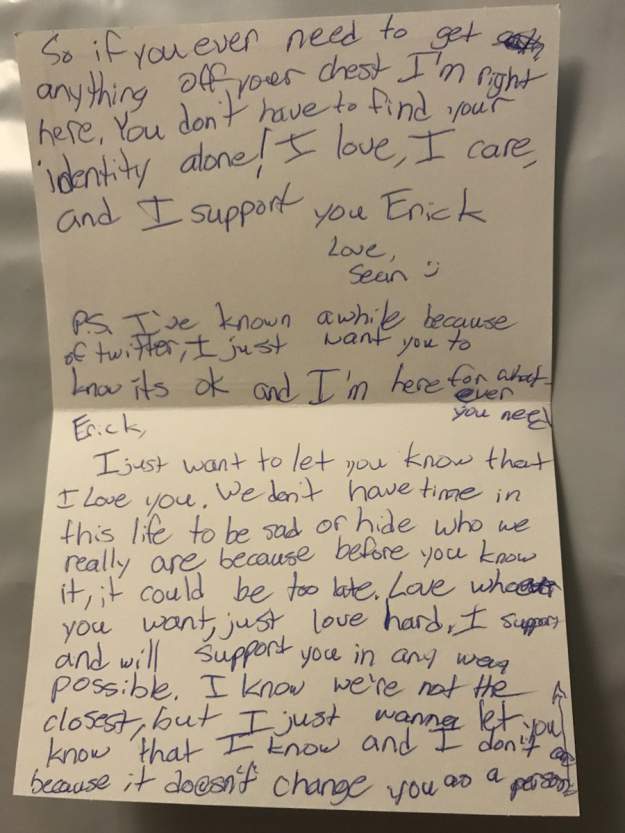 So if you ever need to get
anything off your chest I'm right
here. You don't have to find your
identity alone! I love, I care,
and I support you Erick
Love,
Sean :)
P.S. I've known awhile because
of twitter, I just want you to
know its ok and I'm here for what-
ever
you need
Erick,
I just want to let you know that
I Love you. We don't have time in
this life to be sad or hide who we
really are because before you know
it, it could be too late. Love
you want, just love hard. I support
and will support you in any way
possible. I know we're not the
closest, but I just wanna let you
know that I know and I don't
because it doesn't change you as a person